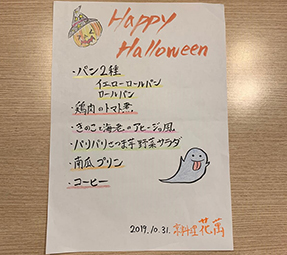 Happy
Halloween
・パン2種
イエローロールパン
ロールパン
・鶏肉のトマト煮
・きのこと海老のアヒージョ風
・パリパリさつま芋野菜サラダ
・南瓜プリン
・コーヒー
2019.10.31.